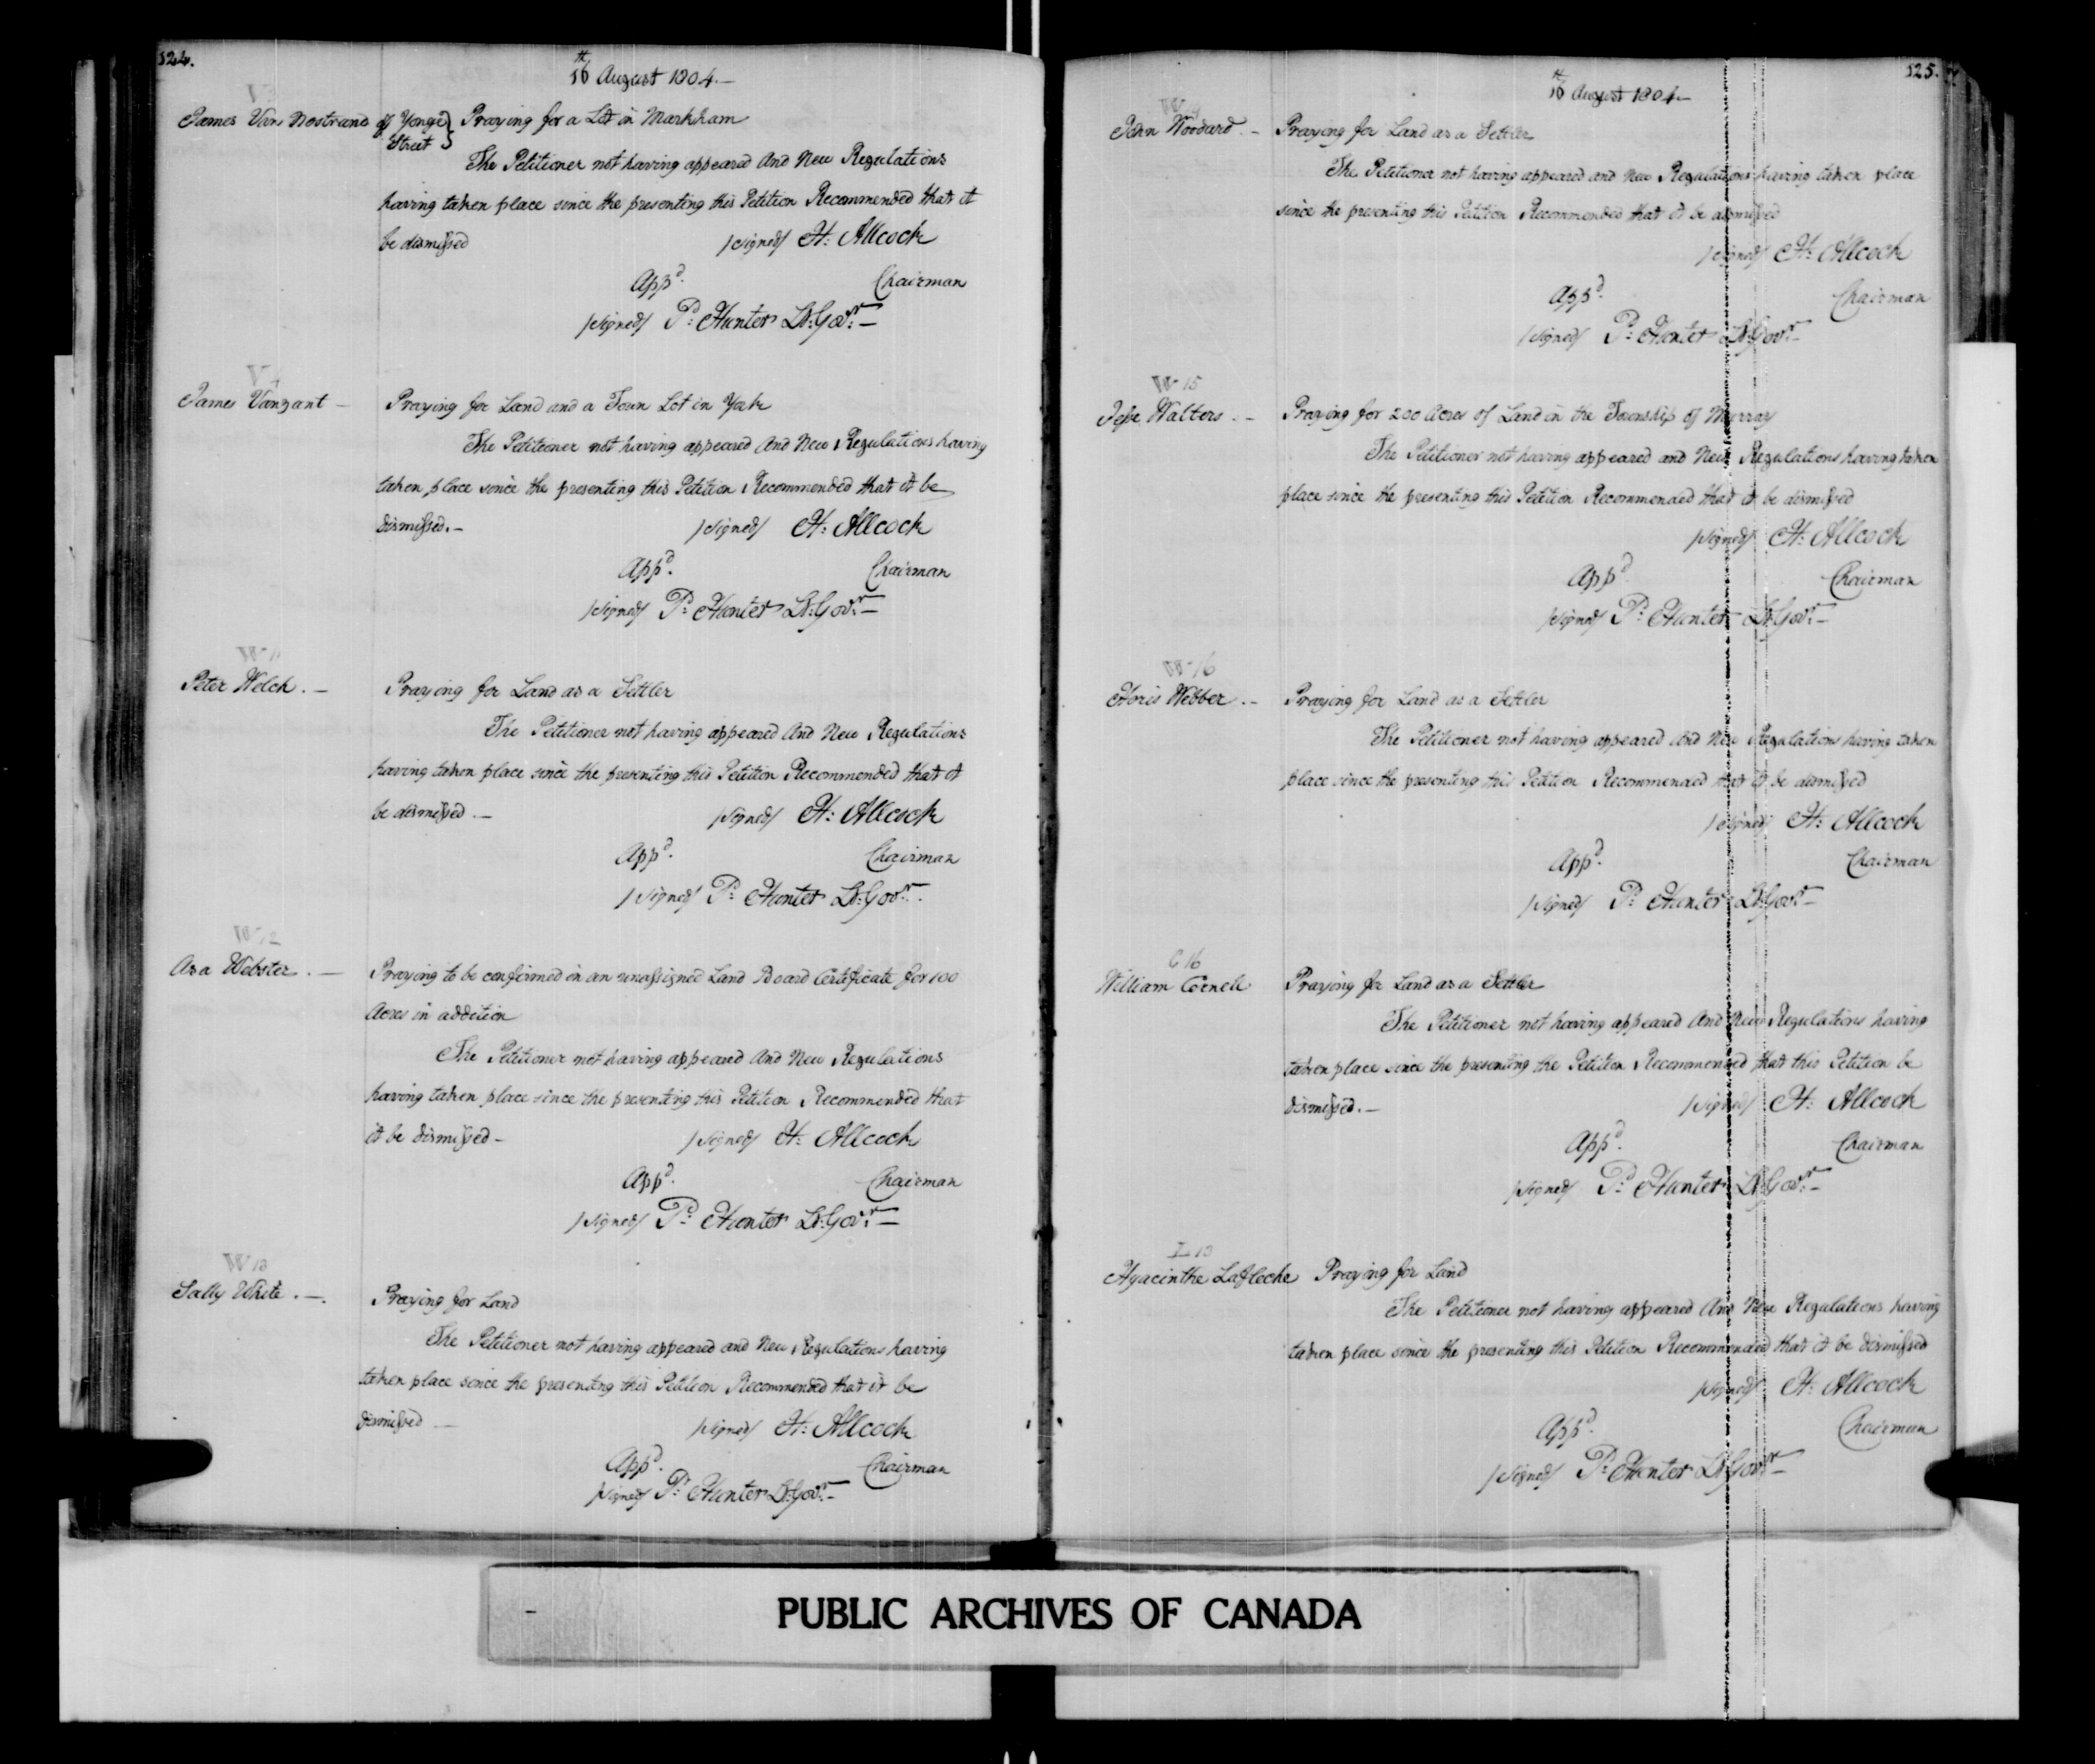 524.
16th August 1804.—
James Van Nostrand of Yonge Street } Praying for a Lot in Markham
The Petitioner not having appeared And New Regulations
having taken place since the presenting this Petition Recommended that it
be dismissed /signed/ H: Allcock
App'd. Chairman
/signed/ P: Hunter Lt: Gov:r —
V 4
James Vanzant — Praying for Land and a Town Lot in York
The Petitioner not having appeared And New Regulations having
taken place since the presenting this Petition Recommended that it be
dismissed.— /signed/ H: Allcock
App'd. Chairman
/signed/ P: Hunter Lt: Gov:r —
Peter Welch. — Praying for Land as a Settler
The Petitioner not having appeared And New Regulations
having taken place since the presenting this Petition Recommended that it
be dismissed.— /signed/ H: Allcock
App'd. Chairman
/signed/ P: Hunter Lt: Gov:r
W 12
Asa Webster. — Praying to be confirmed in an unassigned Land Board Certificate for 100
Acres in addition
The Petitioner not having appeared And New Regulations
having taken place since the presenting this Petition Recommended that
it be dismissed — /signed/ H: Allcock
App'd. Chairman
/signed/ P: Hunter Lt: Gov:r —
W 13
Sally White. — Praying for Land
The Petitioner not having appeared and New Regulations having
taken place since the presenting this Petition Recommended that it be
dismissed — /signed/ H: Allcock
App'd. Chairman
/signed/ P: Hunter Lt: Gov:r —
525.
16th August 1804—
John Woodard. — Praying for Land as a Settler
The Petitioner not having appeared and New Regulations having taken place
since the presenting this Petition Recommended that it be dismissed
/signed/ H: Allcock
App'd. Chairman
/signed/ P: Hunter Lt: Gov:r —
W 15
Jesse Walters. — Praying for 200 Acres of Land in the Township of Murray
The Petitioner not having appeared and New Regulations having taken
place since the presenting this Petition Recommended that it be dismissed
/signed/ H: Allcock
App'd. Chairman
/signed/ P: Hunter Lt: Gov:r —
W 16
Horis Webber. — Praying for Land as a Settler
The Petitioner not having appeared And New Regulations having taken
place since the presenting this Petition Recommended that it be dismissed
/signed/ H: Allcock
App'd. Chairman
/signed/ P: Hunter Lt: Gov:r —
C 16
William Cornell Praying for Land as a Settler
The Petitioner not having appeared And New Regulations having
taken place since the presenting the Petition Recommended that this Petition be
dismissed.— /signed/ H: Allcock
App'd. Chairman
/signed/ P: Hunter Lt: Gov:r —
L 13
Hyacinthe Lafleche Praying for Land
The Petitioner not having appeared And New Regulations having
taken place since the presenting this Petition Recommended that it be dismissed
/signed/ H: Allcock
App'd. Chairman
/signed/ P: Hunter Lt: Gov:r —
PUBLIC ARCHIVES OF CANADA